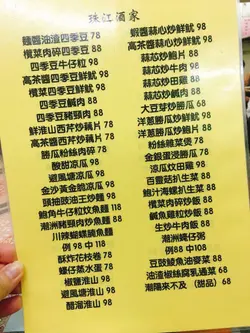 珠江酒家
麵醬油渣四季豆 78
欖菜肉碎四季豆 88
四季豆牛仔粒 98
高茶醬四季豆鮮魷 98
欖菜四季豆鮮魷 98
四季豆鹹肉 88
四季豆豬頸肉 88
鮮淮山西芹藕片 78
高茶醬西芹藕片 78
勝瓜粉絲肉碎 78
酸甜涼瓜 98
避風塘涼瓜 98
金沙黃金脆涼瓜 98
頭抽豉油王炒麵 88
鮑角牛仔粒炆魚麵 118
潮洲豬頸肉炒魚麵 88
川辣蝴蝶腩魚麵
例 98 中 118
酥炸花枝卷 78
蠔仔蒸水蛋 78
椒鹽淮山 98
避風塘淮山 98
醋溜淮山 98
蝦醬蒜心炒鮮魷 98
高茶醬蒜心炒鮮魷 98
蒜芯炒鮑片 88
蒜芯炒牛肉 98
蒜芯炒田雞 88
蒜芯炒鹹肉 88
大豆芽炒勝瓜 68
洋蔥勝瓜炒鮮魷 98
洋蔥勝瓜炒鮑片 98
粉絲雜菜煲 78
金銀蛋浸勝瓜 78
涼瓜炆田雞 98
百靈菇扒生菜 88
鮑汁海螺扒生菜 88
欖菜肉碎炒飯 88
鹹魚雞粒炒飯 88
生炒牛肉飯 88
潮洲蠔仔粥
例 88 中 108
豆豉鯪魚油麥菜 78
油渣椒絲腐乳通菜 68
潮陽來不及 (甜品) 68